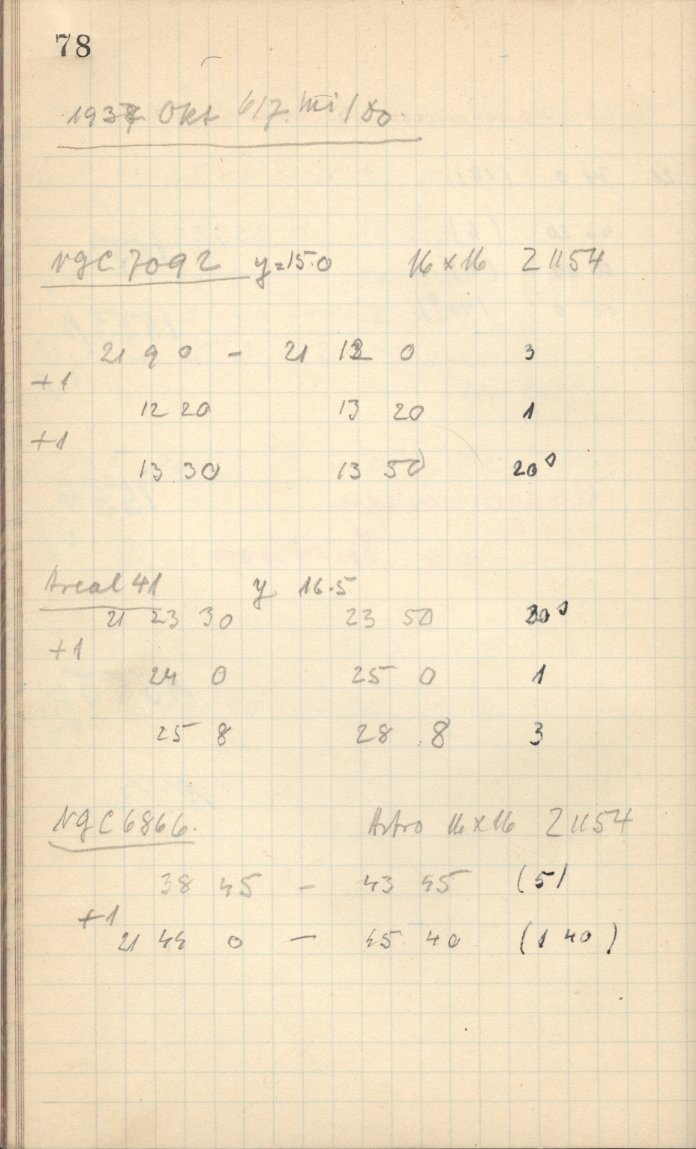 78
Okt 6/7 Mi/Do.
NGC 7092 y=15.0 16 x 16 Z 1154
21 9 0 – 21 12 0 3
+1
12 20 13 20 1
+1
13 30 13 50 20s
Areal 41 y 16.5
21 23 30 23 50 20s
+1
24 0 25 0 1
25 8 28 8 3
NGC 6866. Astro 16 x 16 Z 1154
38 45 – 43 45 (5)
+1
21 44 0 – 45 40 (1 40)